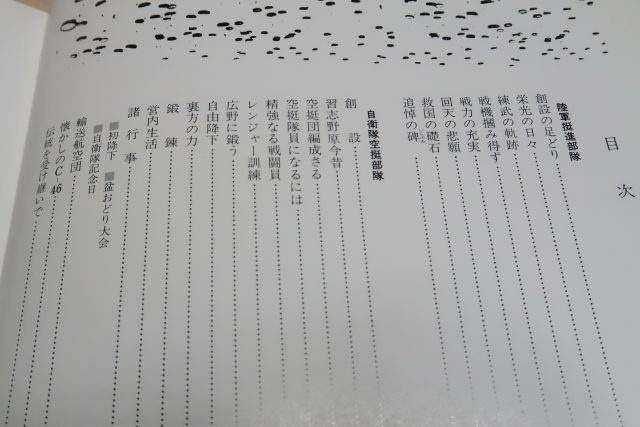 目次
陸軍挺進部隊
創設の足どり
栄光の日々
練武の軌跡
戦機摑み得ず
戦力の充実
回天の悲願
救国の礎石
追悼の碑
自衛隊空挺部隊
創設
習志野原今昔
空挺団編成さる
空挺隊員になるには
精強なる戦闘員
レンジャー訓練
広野に鍛う
自由降下
裏方の力
鍛錬
営内生活
諸行事
■初降下 ■盆おどり大会
■自衛隊記念日
輸送航空団
懐かしのC-46
伝統を受け継いで